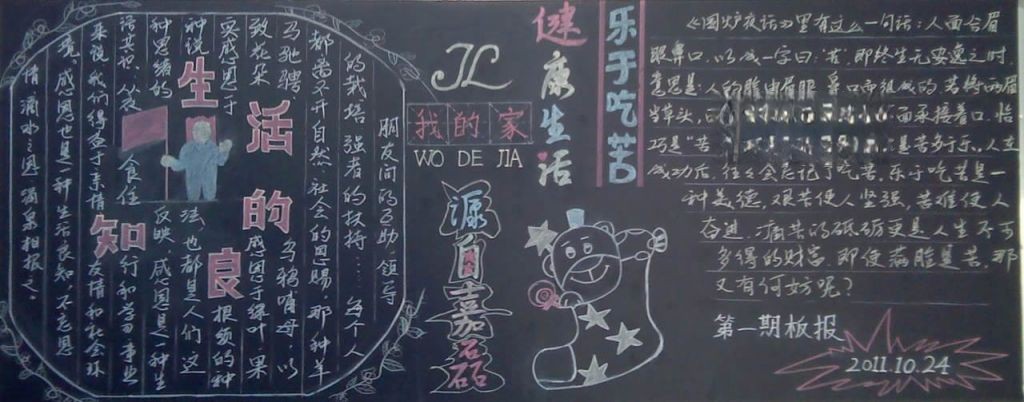 生活的良知
朋友间的互助.领导
的栽培.强者的扶持……每个人
都离不开自然.社会的恩赐.那种羊
马驰骋.乌鸦哺母.以
致花朵感恩于绿叶.果
实感恩于根须的种
种说法.也都是人们这
种思绪的反映.感恩是一种生
来说.我们得益于亲情.友情和社会环
境.感恩也是一种生活良知.不忘恩
情.滴水之恩.涌泉相报之.
JL
我的家
WO DE JIA
源自嘉磊
健康生活
乐于吃苦
《围炉夜话》里有这么一句话:人面合眉
眼鼻口.以成一字曰:苦.即终生无安逸之时.
意思是:人的脸由眉眼鼻口而组成的.若将两眉
当草头,面承接着口.恰
巧是"苦是苦于乐.人生
成功后,往往会忘记了吃苦.乐于吃苦是一
种美德,艰苦使人坚强,苦难使人
奋进.痛苦的砥砺更是人生不可
多得的财富.即使满脸是苦,那
又有何妨呢?
第一期板报
2011.10.24